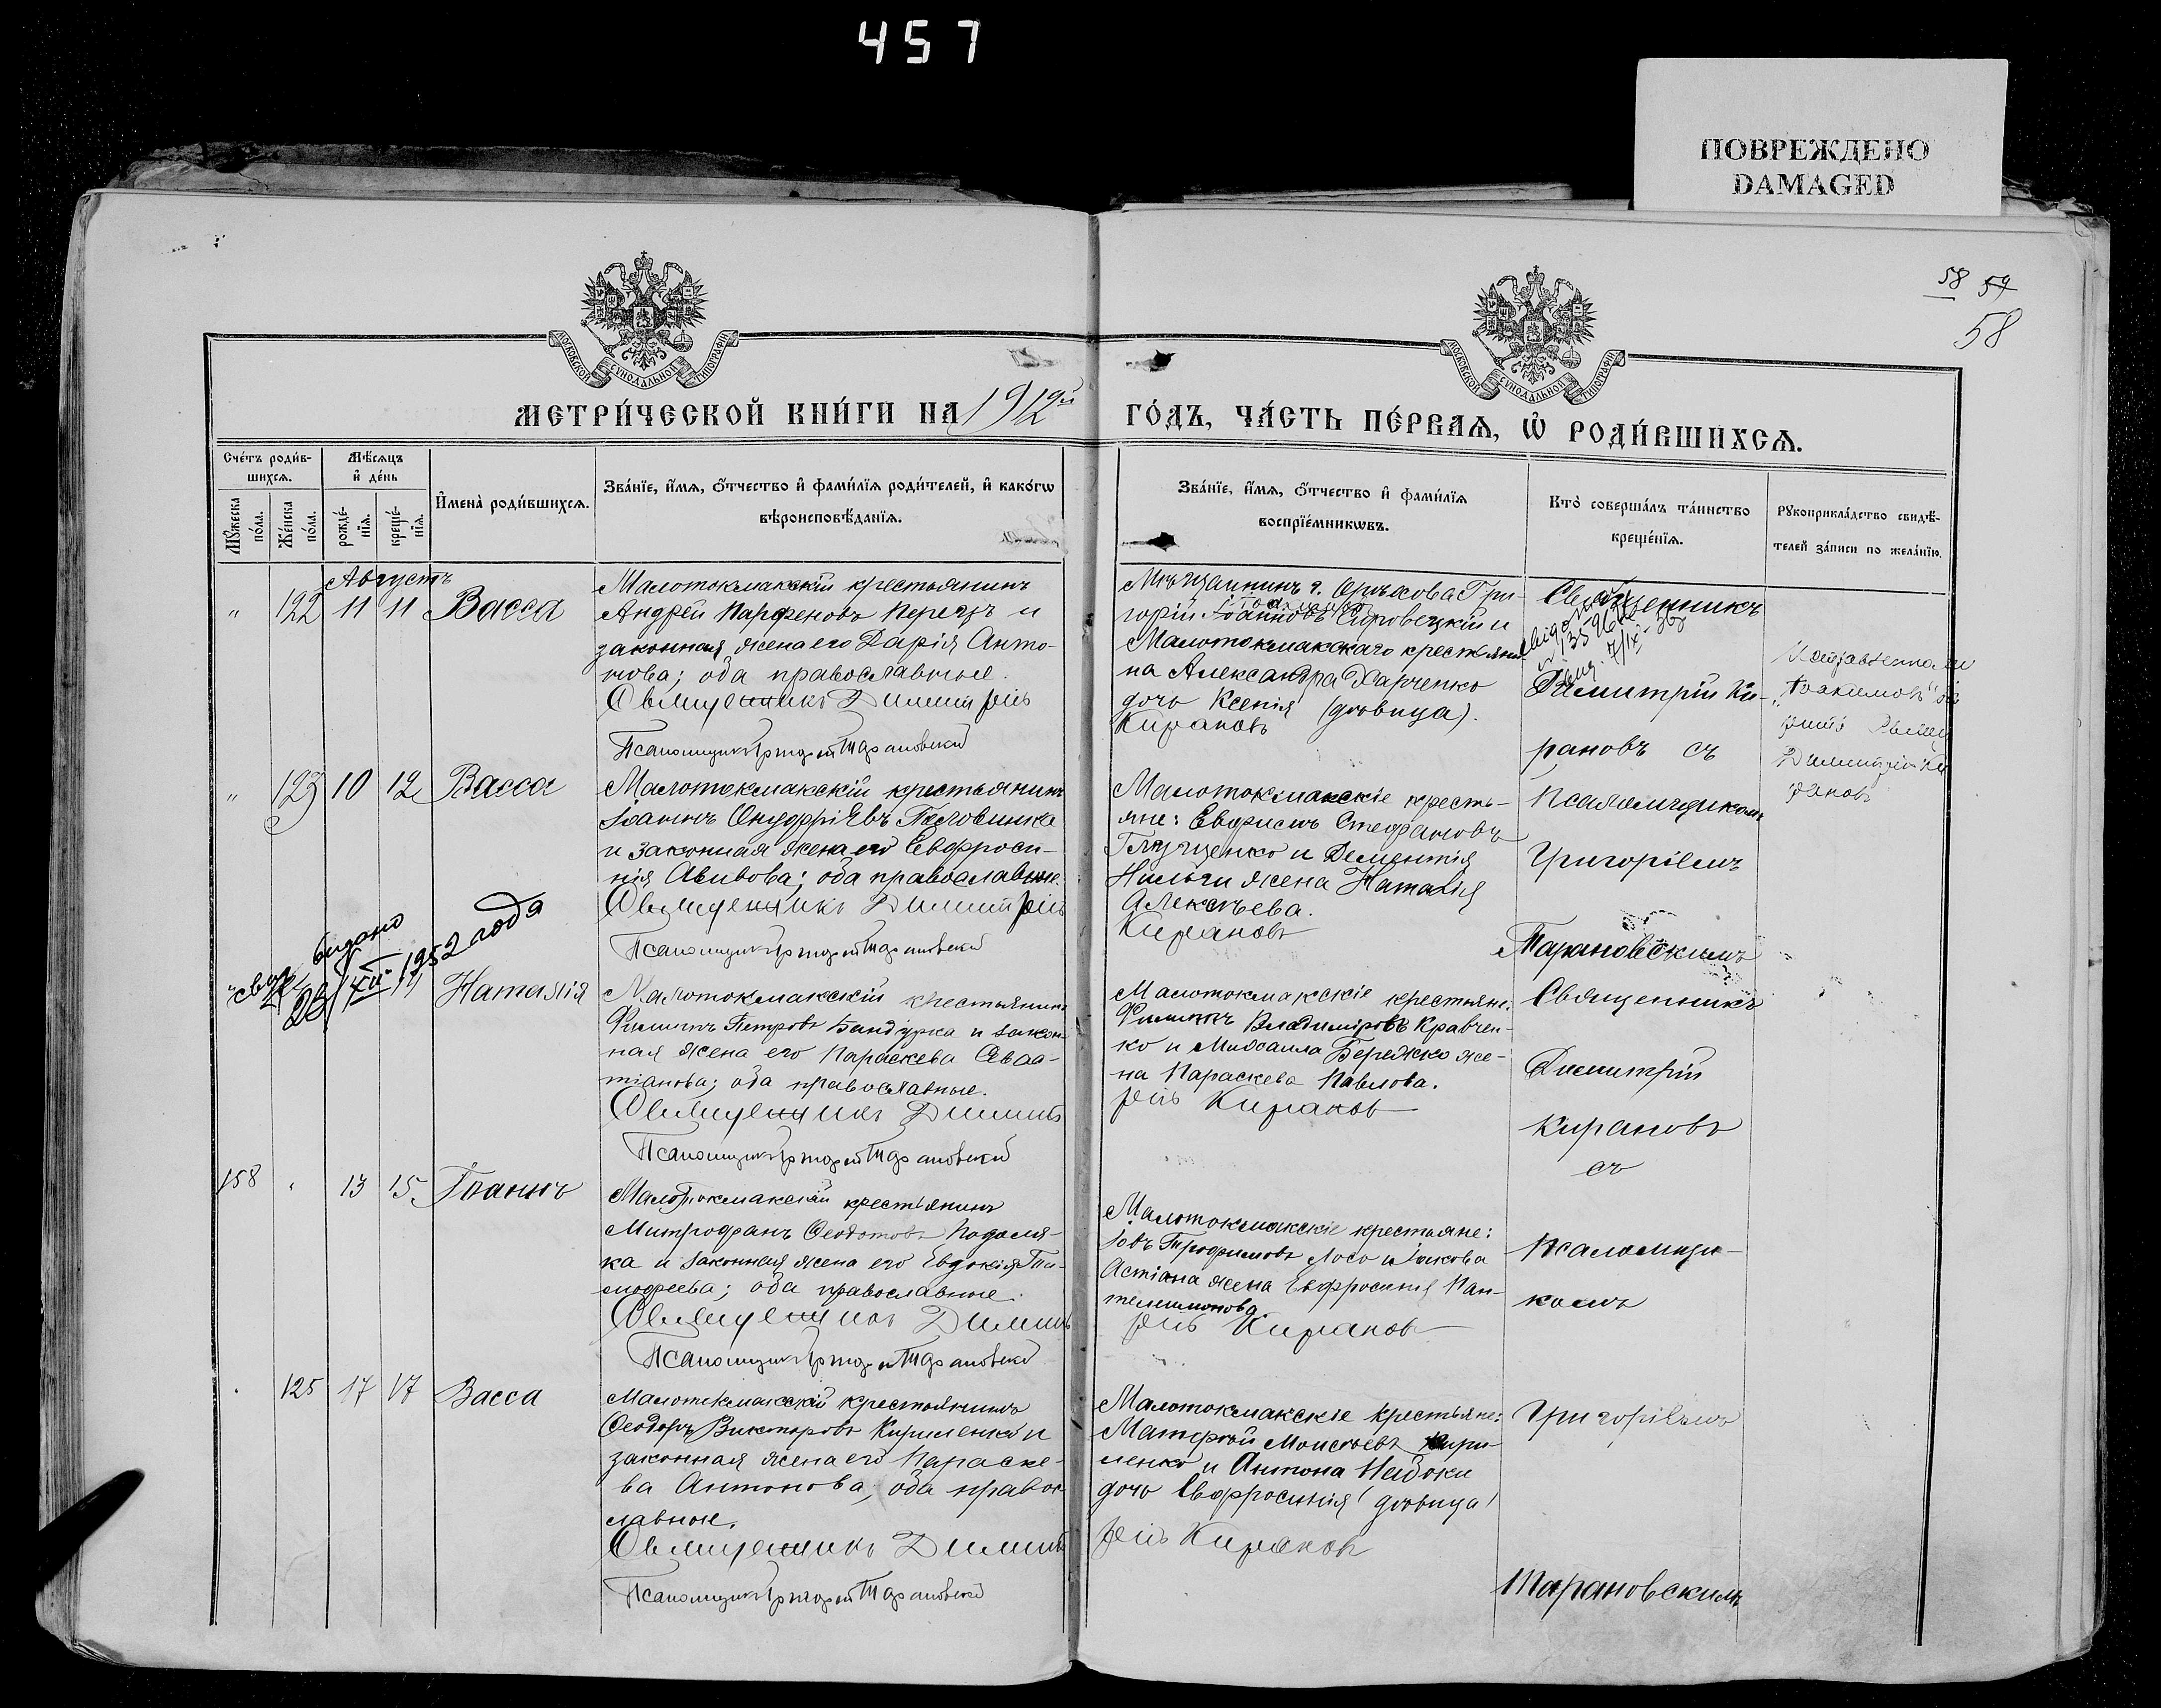 457
ПОВРЕЖДЕНО
DAMAGED
58 59
58
МОСКОВСКОЙ СѴНОДАЛЬНОЙ ТИПОГРАФІИ
МОСКОВСКОЙ СѴНОДАЛЬНОЙ ТИПОГРАФІИ
МЕТРИ́ЧЕСКОЙ КНИ́ГИ НА 1912й
ГО́ДЪ, ЧА́СТЬ ПЕ́РВАЯ, Ѡ҆ РОДИ́ВШИХСѦ.
Сче́тъ роди́в-
шихсѧ.
Мѣ́сѧцъ
и҆ де́нь
Мꙋ́жеска
по́ла.
Же́нска
по́ла.
рожде́-
нїѧ.
креще́-
нїѧ.
И҆мена̀ роди́вшихсѧ.
Зва́нїе, и҆́мѧ, ѻ҆́тчество и҆ фами́лїѧ роди́телей, и҆ како́гѡ
вѣроисповѣ́данїѧ.
Зва́нїе, и҆́мѧ, ѻ҆́тчество и҆ фами́лїѧ
воспрїе́мникѡвъ.
Кто̀ соверша́лъ та́инство
креще́нїѧ.
Рꙋкоприкла́дство свидѣ́-
телей за́писи по жела́нїю.
Августъ
" 122 11 11 Васса
Малотокмакскій крестьянинъ
Андрей Парфеновъ Перецъ и
законная жена его Дарія Анто-
нова; оба православные.
Священникъ Димитрій
Псаломщикъ Григорій Тарановскій
Мѣщанинъ г. Орѣхова Гри-
горій Іоанновъ Сировецкій и
Малотокмакскаго крестьяни-
на Александра Харченко
дочь Ксенія (дѣвица).
Кирановъ
Священникъ
Димитрій Ки-
рановъ съ
Димитрій Ки
рановъ
" 123 10 12 Васса
Малотокмакскій крестьянинъ
Іоаннъ Онуфріевъ Головинка
и законная жена его Евфроси-
нія Авивова; оба православные.
Священникъ Димитрій
Псаломщикъ Григорій Тарановскій
Малотокмакскіе кресть-
яне: Евфрисмъ Стефановъ
Глущенко и Дементія
жена Наталія
Алексѣева.
Кирановъ
Псаломщикомъ
Григоріемъ
Тарановскимъ
свід. видано
28/XII 1952 года
11 Наталія
Малотокмакскій крестьянинъ
Филиппъ Петровъ Бандурка и закон-
ная жена его Параскева Савва-
тіанова; оба православные.
Священникъ Димит
Псаломщикъ Григорій Тарановскій
Малотокмакскіе крестьяне:
Филиппъ Владиміровъ Кравчен-
ко и Михаила Бережко же-
на Параскева Павлова.
рій Кирановъ
Священникъ
Димитрій
Кирановъ
съ
158 " 13 15 Іоаннъ
Малотокмакскій крестьянинъ
Митрофанъ Феодотовъ Подоля-
ка и законная жена его Евдокія Ти-
мофеева; оба православные.
Священникъ Димит
Псаломщикъ Григорій Тарановскій
Малотокмакскіе крестьяне:
Іовъ Трофимовъ Лосо и Іакова
Астіана жена Евфросинія Пан-
телеимонова.
рій Кирановъ
Псаломщи-
комъ
" 125 17 17 Васса
Малотокмакскій крестьянинъ
Феодоръ Викторовъ Кириленко и
законная жена его Параске-
ва Антонова; оба правос-
лавные.
Священникъ Димит
Псаломщикъ Григорій Тарановскій
Малотокмакскіе крестьяне:
Матфій Моисеевъ Кири-
ленко и Антона Набоки
дочь Евфросинія (дѣвица)
рій Кирановъ
Григоріемъ
Тарановскимъ